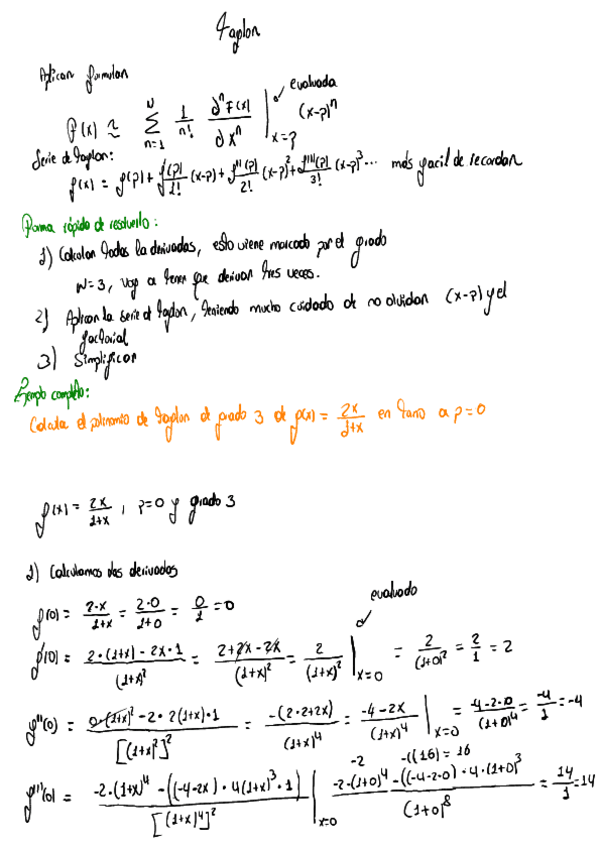 Taylor
Aplicar formular
P(x) ≈ N ∑ n=1 1/n! ∂ⁿF(x)/∂xⁿ | x=p (x-p)ⁿ evaluada
Serie de Taylor:
f(x) = f(p) + f'(p)/1! (x-p) + f''(p)/2! (x-p)² + f'''(p)/3! (x-p)³ ... más facil de recordar
Forma rápida de resolverlo:
1) Calcular todas la derivadas, esto viene marcado por el grado
N=3, voy a tener que derivar tres veces.
2) Aplicar la serie de Taylor, teniendo mucho cuidado de no olvidar (x-p) y el
factorial
3) Simplificar
Ejemplo completo:
Calcula el polinomio de Taylor de grado 3 de f(x) = 2x/1+x en torno a p=0
f(x) = 2x/1+x , p=0 y grado 3
1) Calculamos las derivadas
evaluado
f(0) = 2·x/1+x = 2·0/1+0 = 0/1 = 0
f'(0) = 2·(1+x) - 2x·1/(1+x)² = 2+2x-2x/(1+x)² = 2/(1+x)² | x=0 = 2/(1+0)² = 2/1 = 2
f''(0) = 0·(1+x)² - 2·2(1+x)·1/[(1+x)²]² = -(2·2+2x)/(1+x)⁴ = -4-2x/(1+x)⁴ | x=0 = -4-2·0/(1+0)⁴ = -4/1 = -4
-2 -((16) = 16
f'''(0) = -2·(1+x)⁴ - ((-4-2x)·4(1+x)³·1)/[(1+x)⁴]² | x=0 -2·(1+0)⁴ -((-4-2·0)·4·(1+0)³/(1+0)⁸ = 14/1 = 14